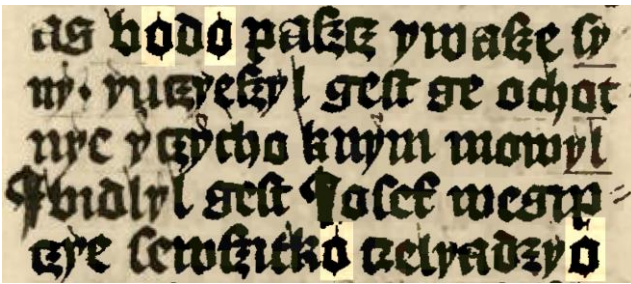 as bødø paſzcz ywaſze ſy
ny· yuczyeſzyl geſt ge ochot
nye yczÿcho knÿm mowyl
¶bidlyl geſt Joſef wegip
czye ſewſzitkø czelyadzyø